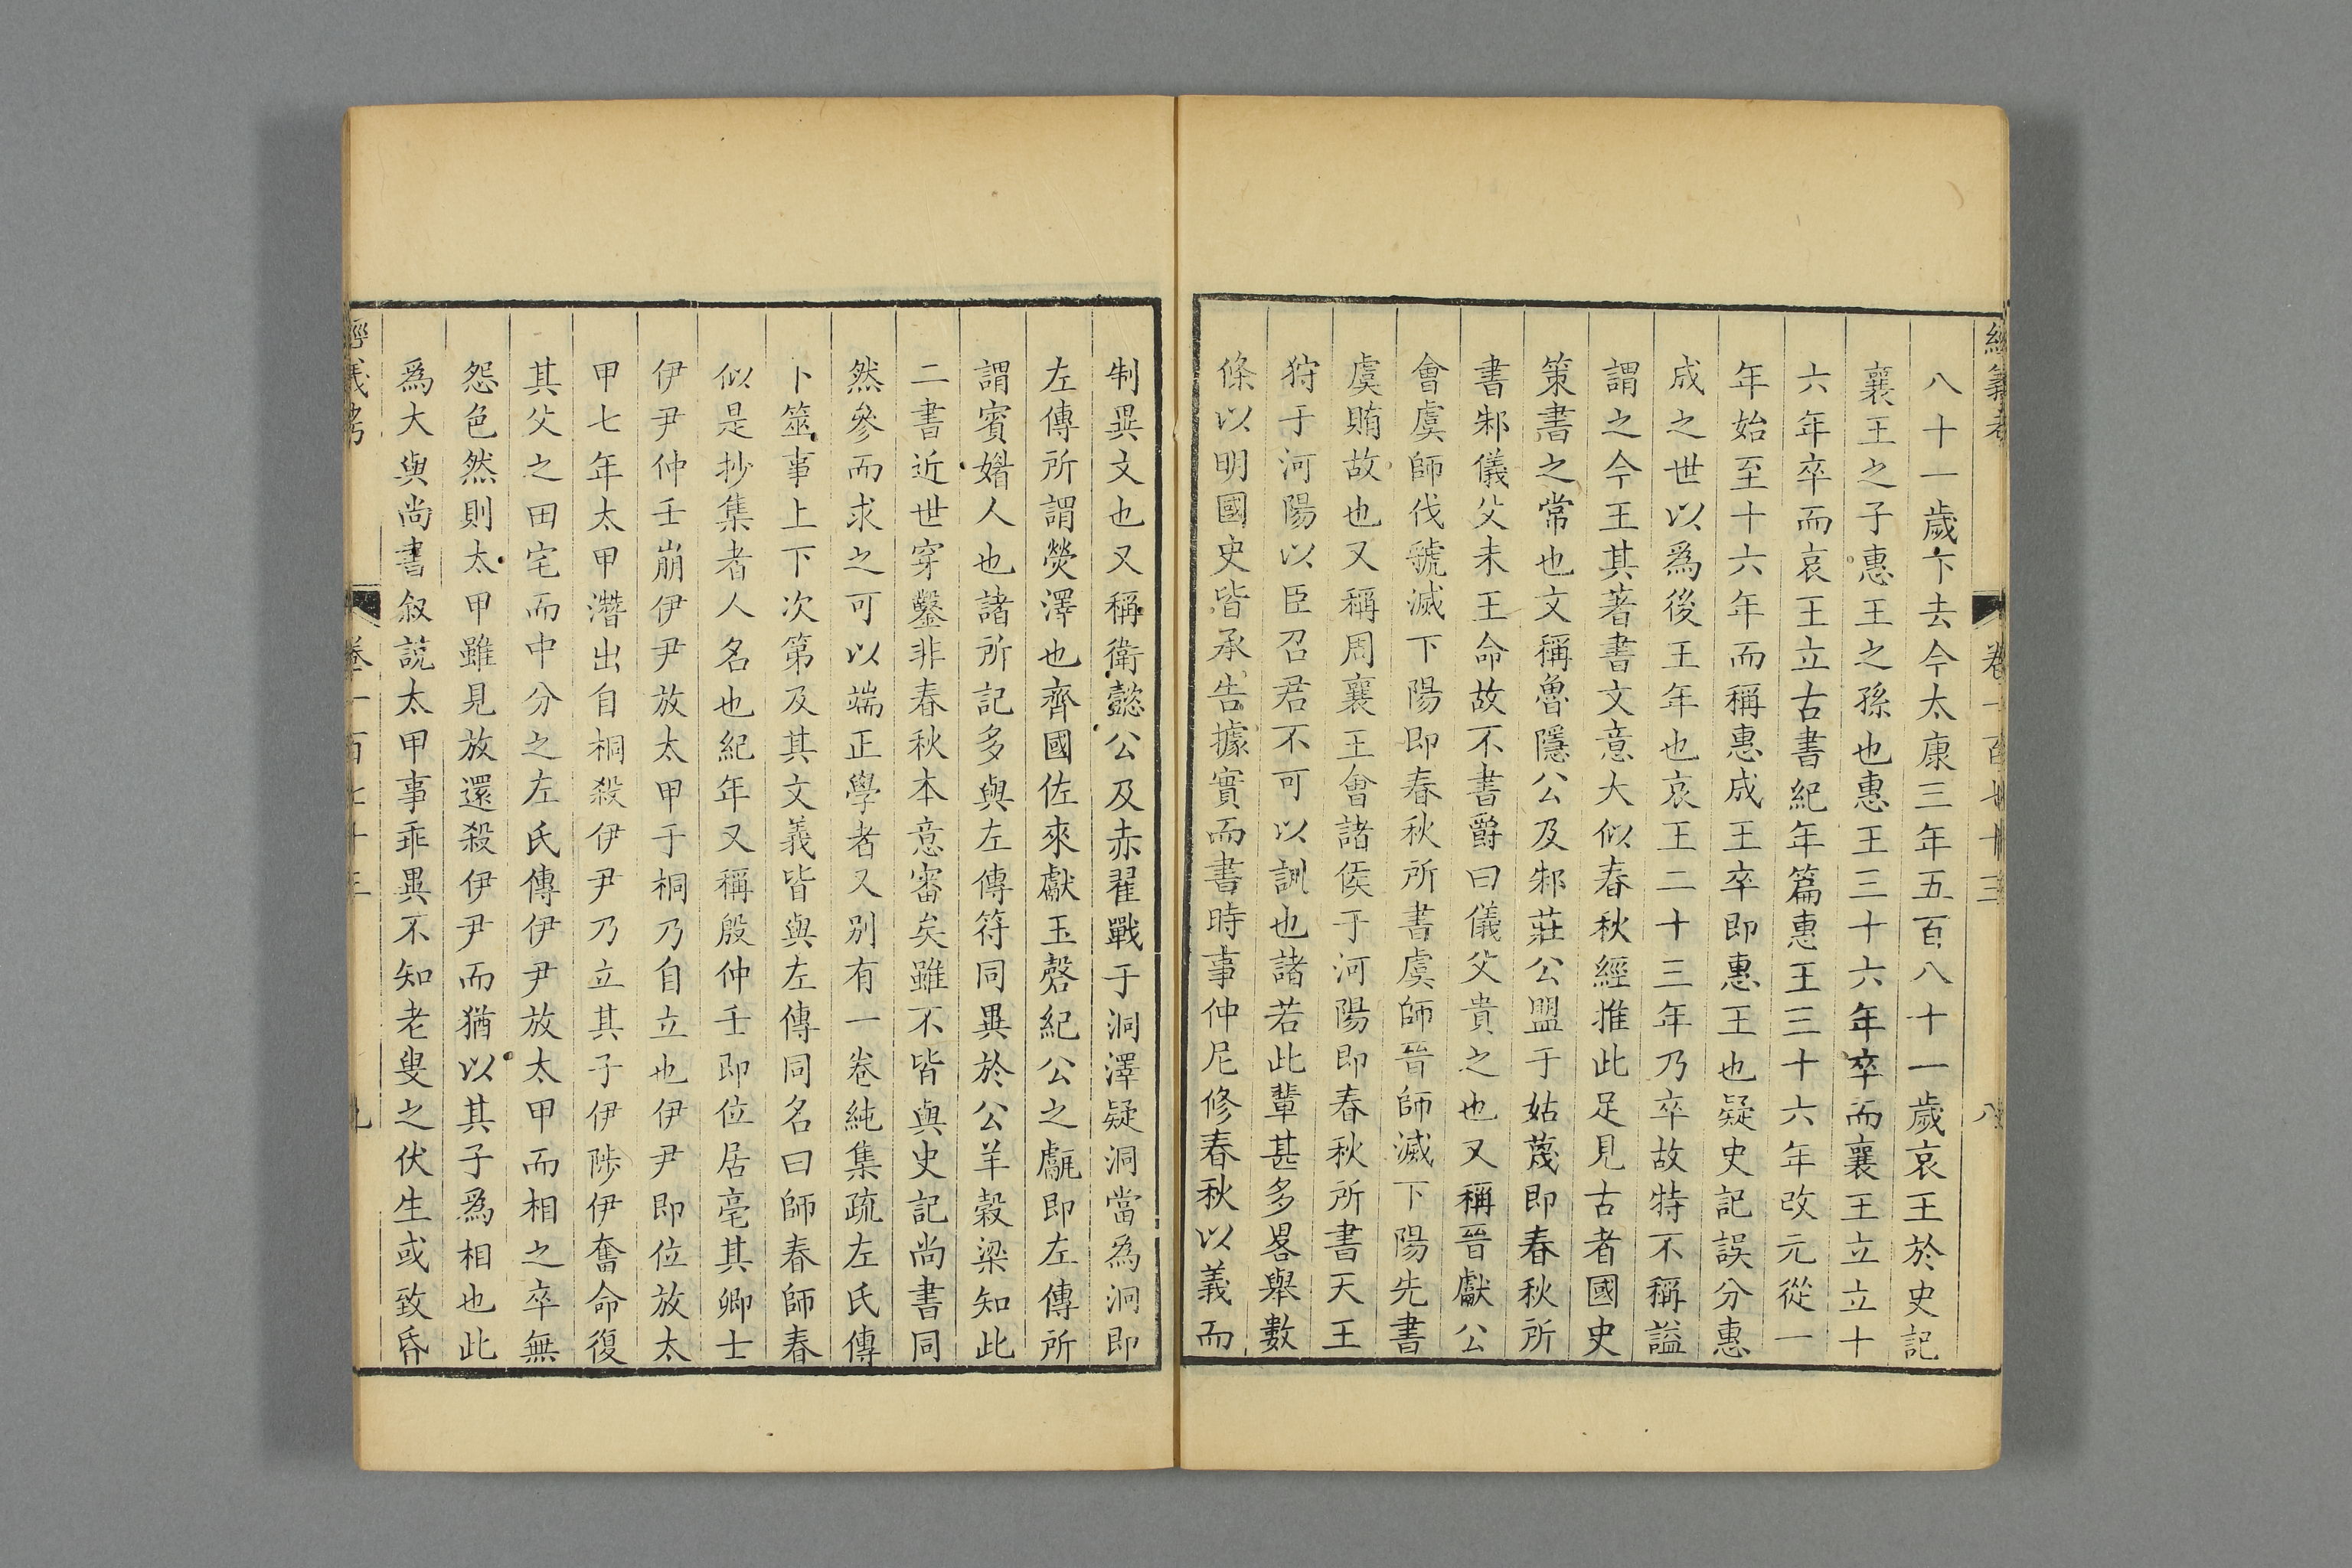 經義考 卷一百七十三 八
八十一歲卞去今太康三年五百八十一歲哀王於史記
襄王之子惠王之孫也惠王三十六年卒而襄王立立十
六年卒而哀王立古書紀年篇惠王三十六年改元從一
年始至十六年而稱惠成王卒即惠王也疑史記誤分惠
成之世以爲後王年也哀王二十三年乃卒故特不稱謚
謂之今王其著書文意大似春秋經推此足見古者國史
策書之常也文稱魯隱公及邾莊公盟于姑蔑即春秋所
書邾儀父未王命故不書爵曰儀父貴之也又稱晉獻公
會虞師伐虢滅下陽即春秋所書虞師晉師滅下陽先書
虞賄故也又稱周襄王會諸侯于河陽即春秋所書天王
狩于河陽以臣召君不可以訓也諸若此輩甚多畧舉數
條以明國史皆承告據實而書時事仲尼修春秋以義而
制異文也又稱衛懿公及赤翟戰于洞澤疑洞當為泂即
左傳所謂熒澤也齊國佐來獻玉磬紀公之甗即左傳所
謂賓媚人也諸所記多與左傳符同異於公羊穀梁知此
二書近世穿鑿非春秋本意審矣雖不皆與史記尚書同
然參而求之可以端正學者又别有一卷純集疏左氏傳
卜筮事上下次第及其文義皆與左傳同名曰師春師春
似是抄集者人名也紀年又稱殷仲壬即位居亳其卿士
伊尹仲壬崩伊尹放太甲于桐乃自立也伊尹即位放太
甲七年太甲潛出自桐殺伊尹乃立其子伊陟伊奮命復
其父之田宅而中分之左氏傳伊尹放太甲而相之卒無
怨色然則太甲雖見放還殺伊尹而猶以其子爲相也此
爲大與尚書叙説太甲事乖異不知老叟之伏生或致昏
經義考 卷一百七十三 九